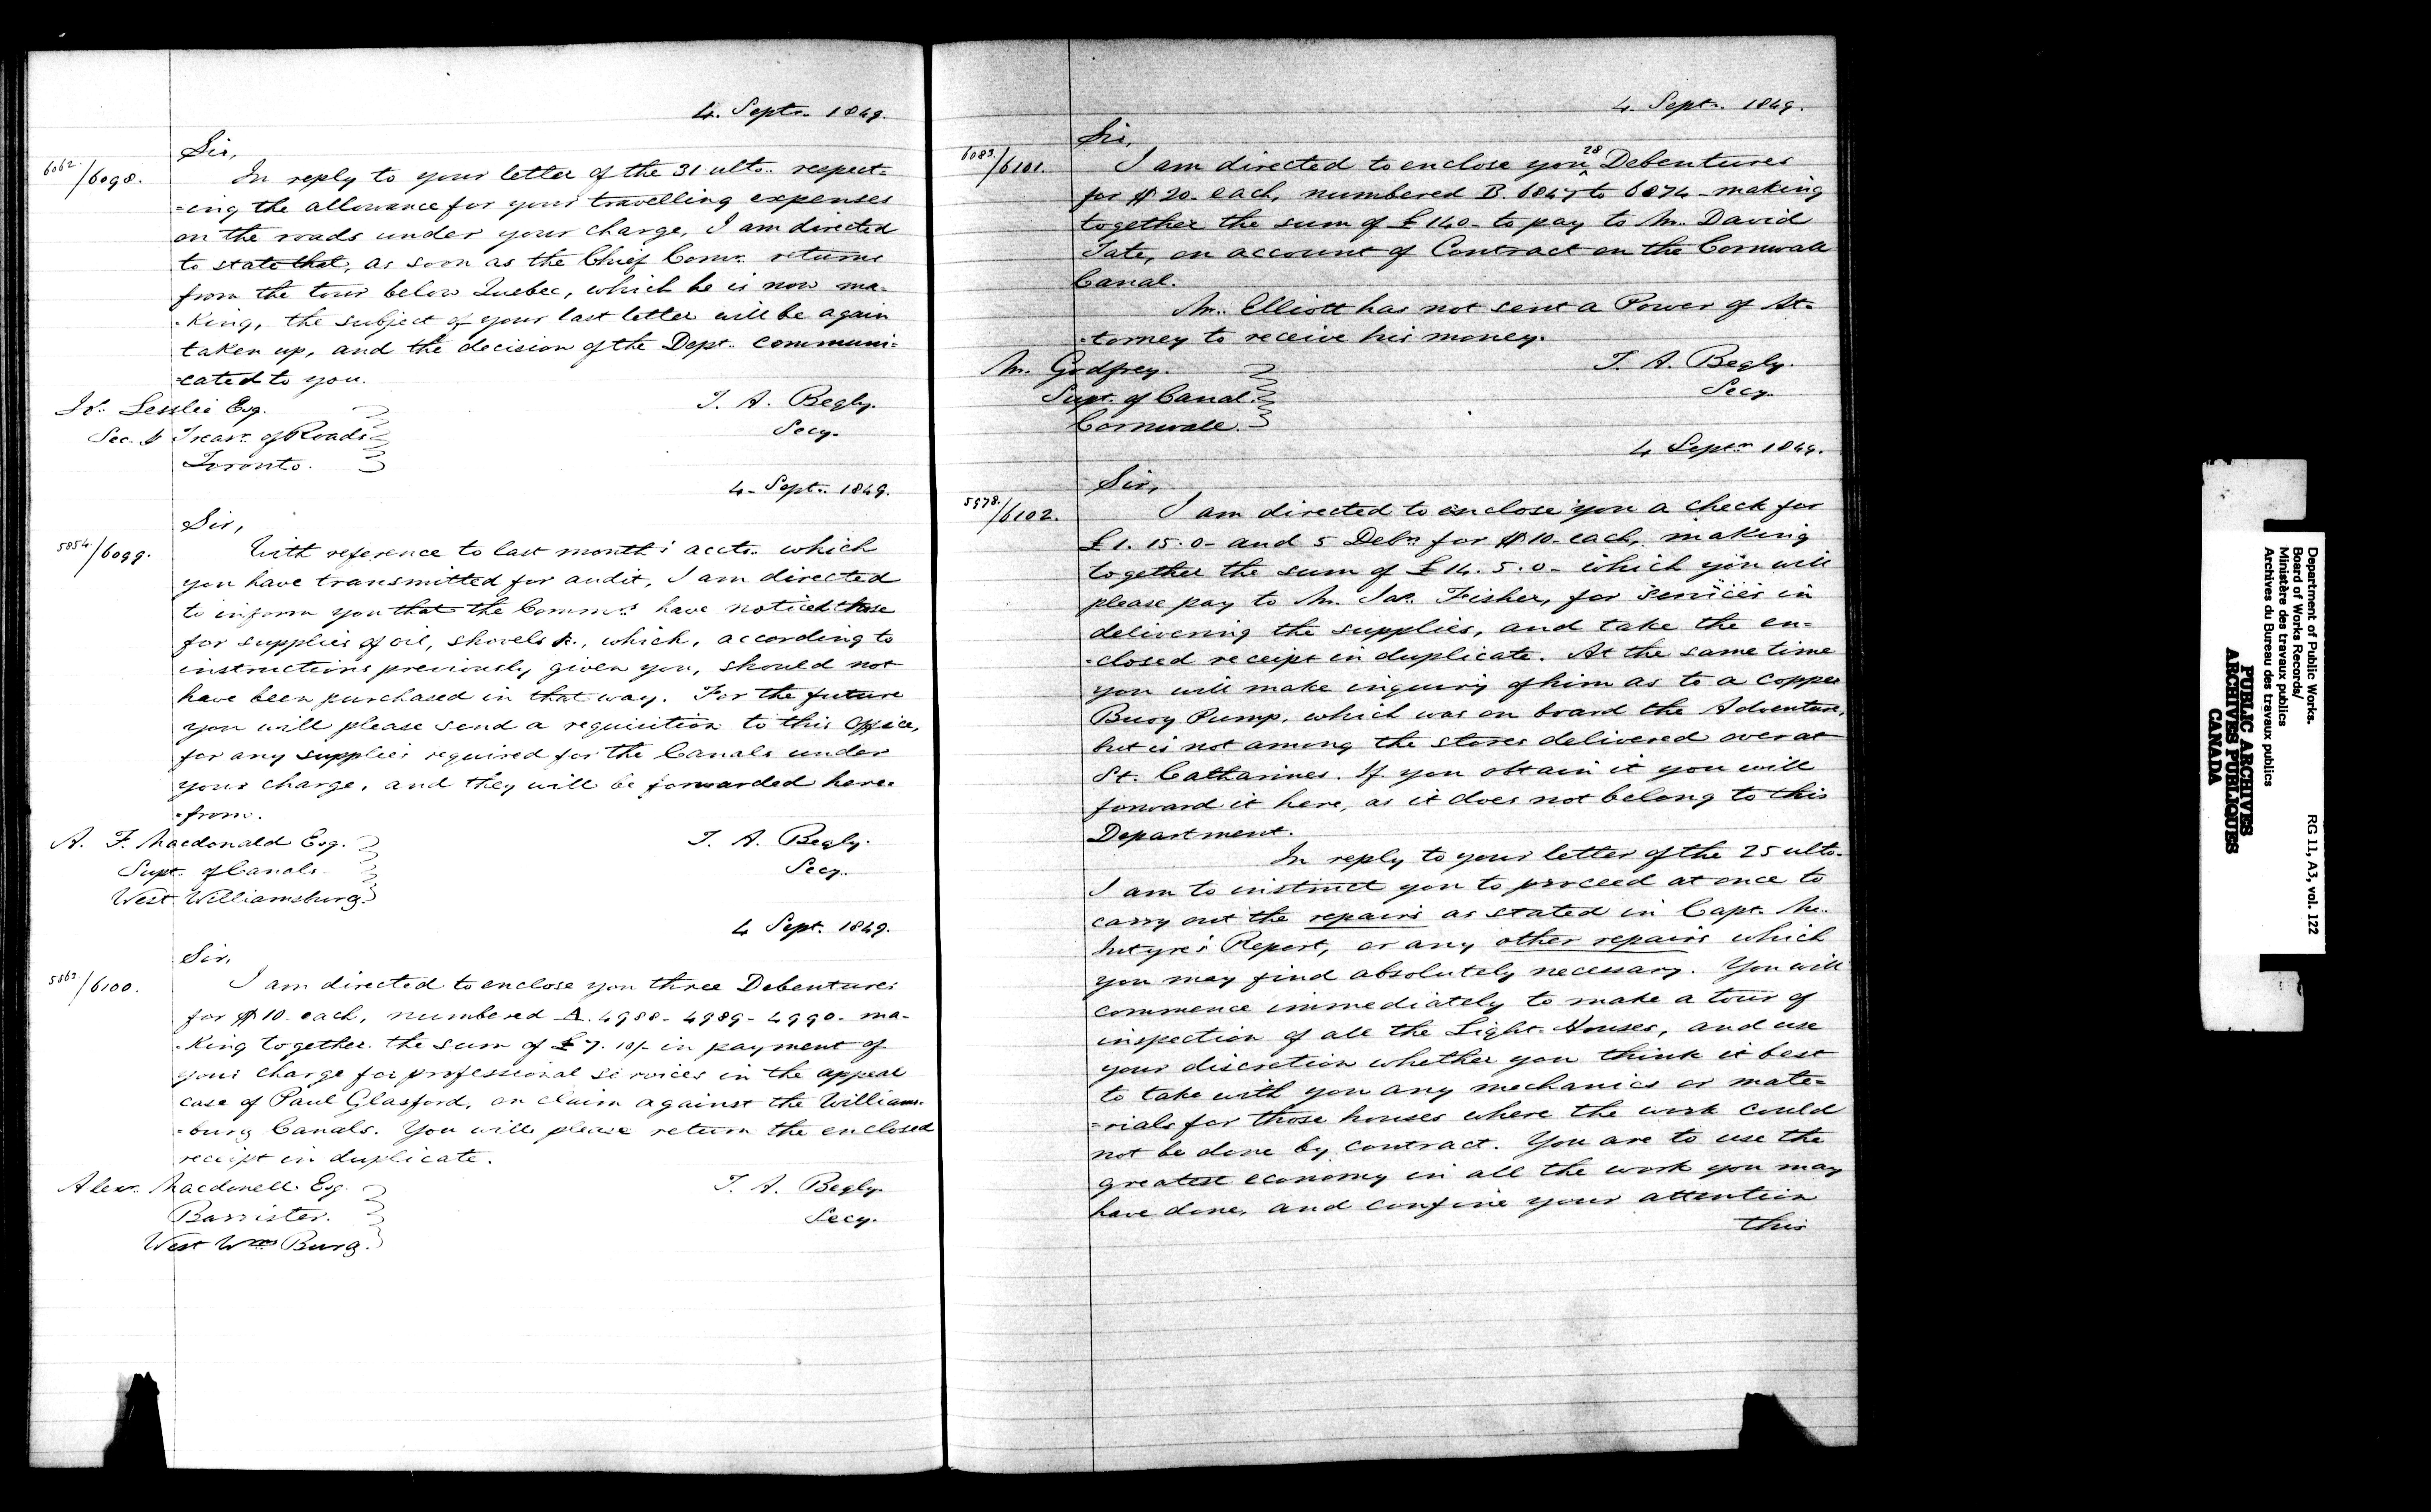 4. Septr. 1849.
Sir,
6062./6098.
In reply to your letter of the 31 ulto. respect-
-ing the allowance for your travelling expenses
on the roads under your charge, I am directed
to state that, as soon as the Chief Comr. returns
from the tour below Quebec, which he is now ma-
-king, the subject of your last letter will be again
taken up, and the decision of the Dept. communi-
-cated to you.
Js. Lesslie Esq.
T. A. Begly.
Sec. & Treasr. of Roads
Secy.
Toronto.
4. Septr. 1849.
Sir,
5854./6099.
With reference to last month's accts. which
you have transmitted for audit, I am directed
to inform you that the Commrs. have noticed those
for supplies of oil, shovels &., which, according to
instructions previously given you, should not
have been purchased in that way. For the future
you will please send a requisition to this Office,
for any supplies required for the Canals under
your charge, and they will be forwarded here-
-from.
A. F. Macdonald Esq.
T. A. Begly.
Supt. of Canals.
Secy.
West Williamsburg.
4 Sept. 1849.
Sir,
/6100.
I am directed to enclose you three Debentures
for $10. each, numbered A. 4988- 4989- 4990- ma-
-king together the sum of £7. 10/- in payment of
your charge for professional services in the appeal
case of Paul Glasford, on claim against the Williams-
-burg Canals. You will please return the enclosed
receipt in duplicate.
Alexr. Macdonell Esq.
T. A. Begly.
Barrister.
Secy.
West Wms Burg.
4. Septr. 1849.
Sir,
6083./6101.
I am directed to enclose you 28 Debentures
for $20. each, numbered B. 6847 to 6874- making
together the sum of £140- to pay to Mr. David
Tate, on account of Contract on the Cornwall
Canal.
Mr. Elliott has not sent a Power of At-
-torney to receive his money.
Mr. Godfrey.
T. A. Begly.
Supt. of Canal.
Secy.
Cornwall.
4 Septr. 1849.
Sir,
5978./6102.
I am directed to enclose you a check for
£1. 15. 0- and 5 Debrs. for $10- each, making
together the sum of £14. 5. 0- which you will
please pay to Mr. Jas. Fisher, for services in
delivering the supplies, and take the en-
-closed receipt in duplicate. At the same time
you will make inquiry of him as to a copper
Buoy Pump, which was on board the Adventure,
but is not among the stores delivered over at
St. Catharines. If you obtain it you will
forward it here, as it does not belong to this
Department.
In reply to your letter of the 25 ulto.
I am to instruct you to proceed at once to
carry out the repairs as stated in Capt. Mc-
Intyre's Report, or any other repairs which
you may find absolutely necessary. You will
commence immediately to make a tour of
inspection of all the Light Houses, and use
your discretion whether you think it best
to take with you any mechanics or mate-
-rials for those houses where the work could
not be done by contract. You are to use the
greatest economy in all the work you may
have done, and confine your attention
this
Department of Public Works.
Board of Works Records/
Ministère des travaux publics
Archives du Bureau des travaux publics
RG 11, A3, vol. 122
PUBLIC ARCHIVES
ARCHIVES PUBLIQUES
CANADA